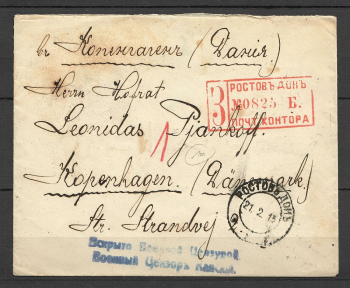 въ Копенгагенъ (Данія).
Herrn Hofrat
Leonidas Pjankoff
Kopenhagen. (Dänemark)
Str. Strandvej
З
РОСТОВЪ ДОНЪ
№0825 Б.
ПОЧТ. КОНТОРА
РОСТОВЪ ДОНЪ
21 2 15
Вскрыто Военной Цензурой.
Военный Цензоръ